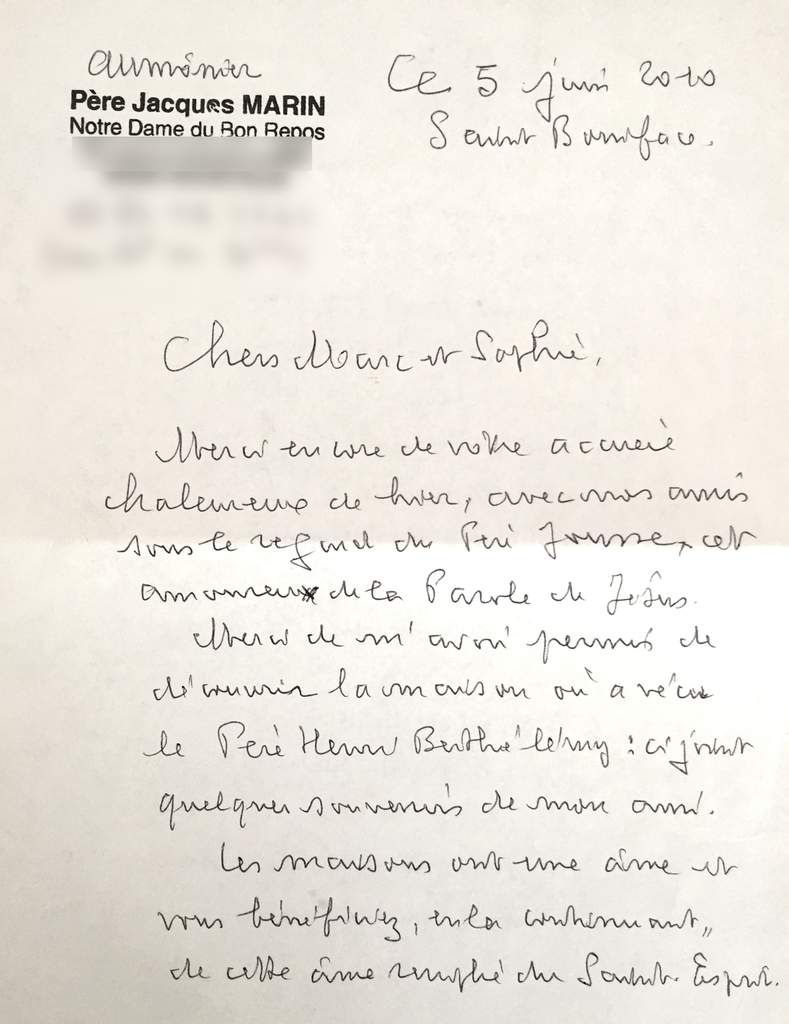 aumônier
Père Jacques MARIN
Notre Dame du Bon Repos
Ce 5 juin 2010
Saint Boniface.
Chers Marc et Sophie,
Merci encore de votre accueil
chaleureux de hier, avec nos amis
sous le regard du Père Jousse, cet
amoureux de la Parole de Jésus.
Merci de m'avoir permis de
découvrir la maison où a vécu
le Père Henri Barthélémy : ci joint
quelques souvenirs de mon ami.
Les maisons ont une âme et
vous bénéficiez, en la continuant,,
de cette âme remplie du Saint-Esprit.